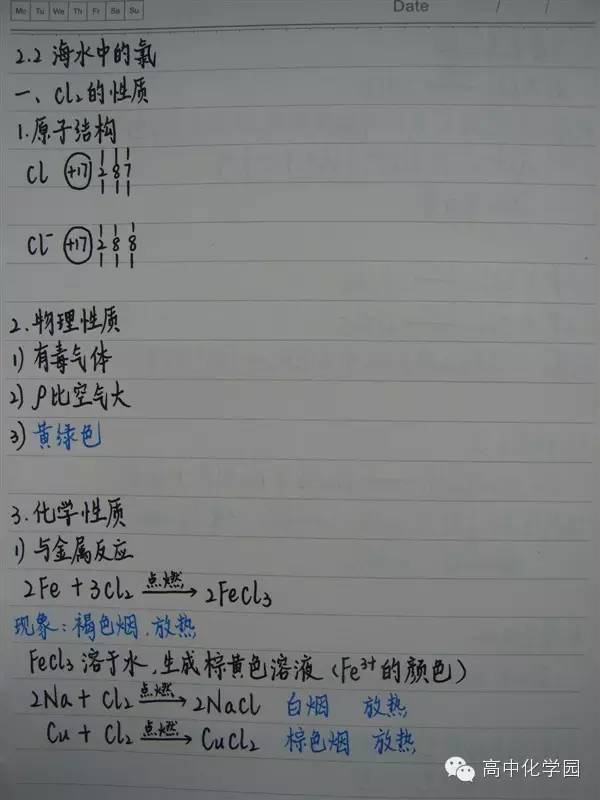 Mo Tu We Th Fr Sa Su
Date / /
2.2 海水中的氯
一、Cl₂的性质
1.原子结构
Cl +17 2 8 7
Cl⁻ +17 2 8 8
2.物理性质
1) 有毒气体
2) ρ比空气大
3) 黄绿色
3.化学性质
1) 与金属反应
2Fe + 3Cl₂ 点燃→ 2FeCl₃
现象:褐色烟.放热
FeCl₃溶于水,生成棕黄色溶液(Fe³⁺的颜色)
2Na + Cl₂ 点燃→ 2NaCl 白烟 放热
Cu + Cl₂ 点燃→ CuCl₂ 棕色烟 放热
高中化学园